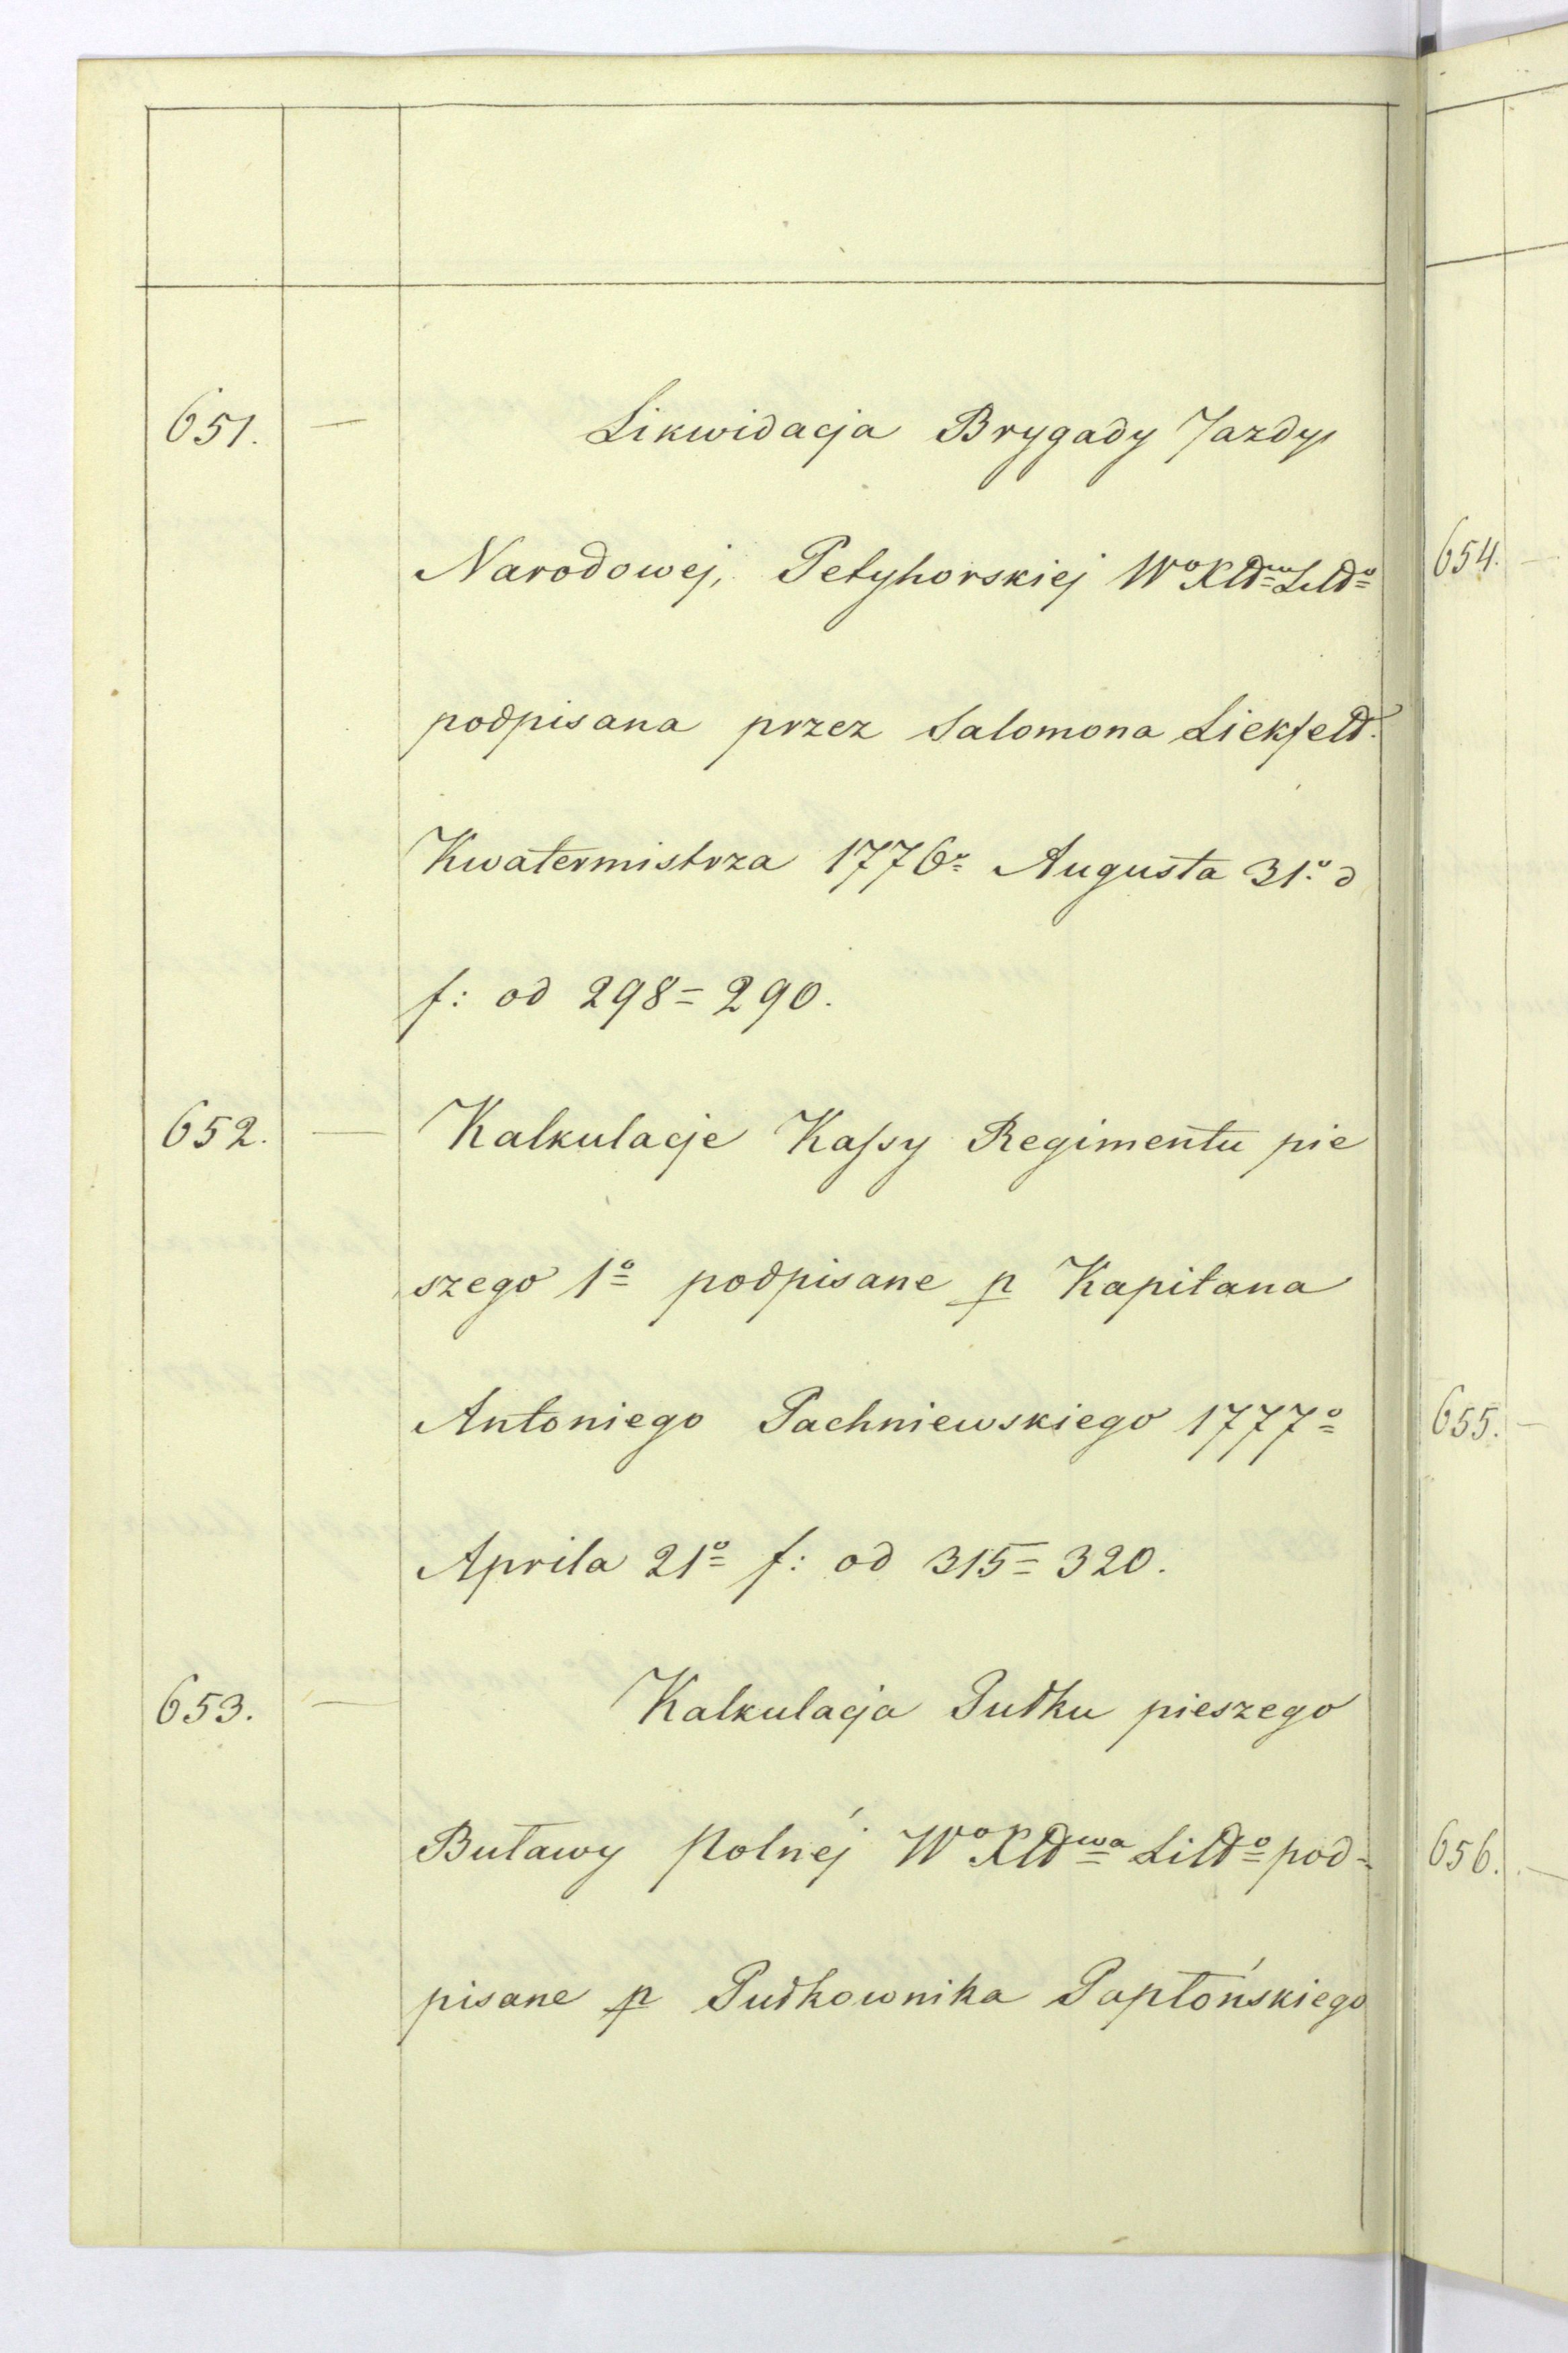 651. — Likwidacja Brygady Jazdy
Narodowej, Petyhorskiej Wo Xtdwa Littdo
podpisana przez Salomona Liekfeld.
Kwatermistrza 1776o Augusta 31o d
f: od 298 = 290.
652. — Kalkulacje Kassy Regimentu pie
szego 1o podpisane p Kapitana
Antoniego Pachniewskiego 1777o
Aprila 21o f: od 315 = 320.
653. — Kalkulacja Pułku pieszego
Buławy Polnéj Wo Xtdwa Littdo pod=
pisane p Pułkownika Papłońskiego
654. —
655. —
656. —